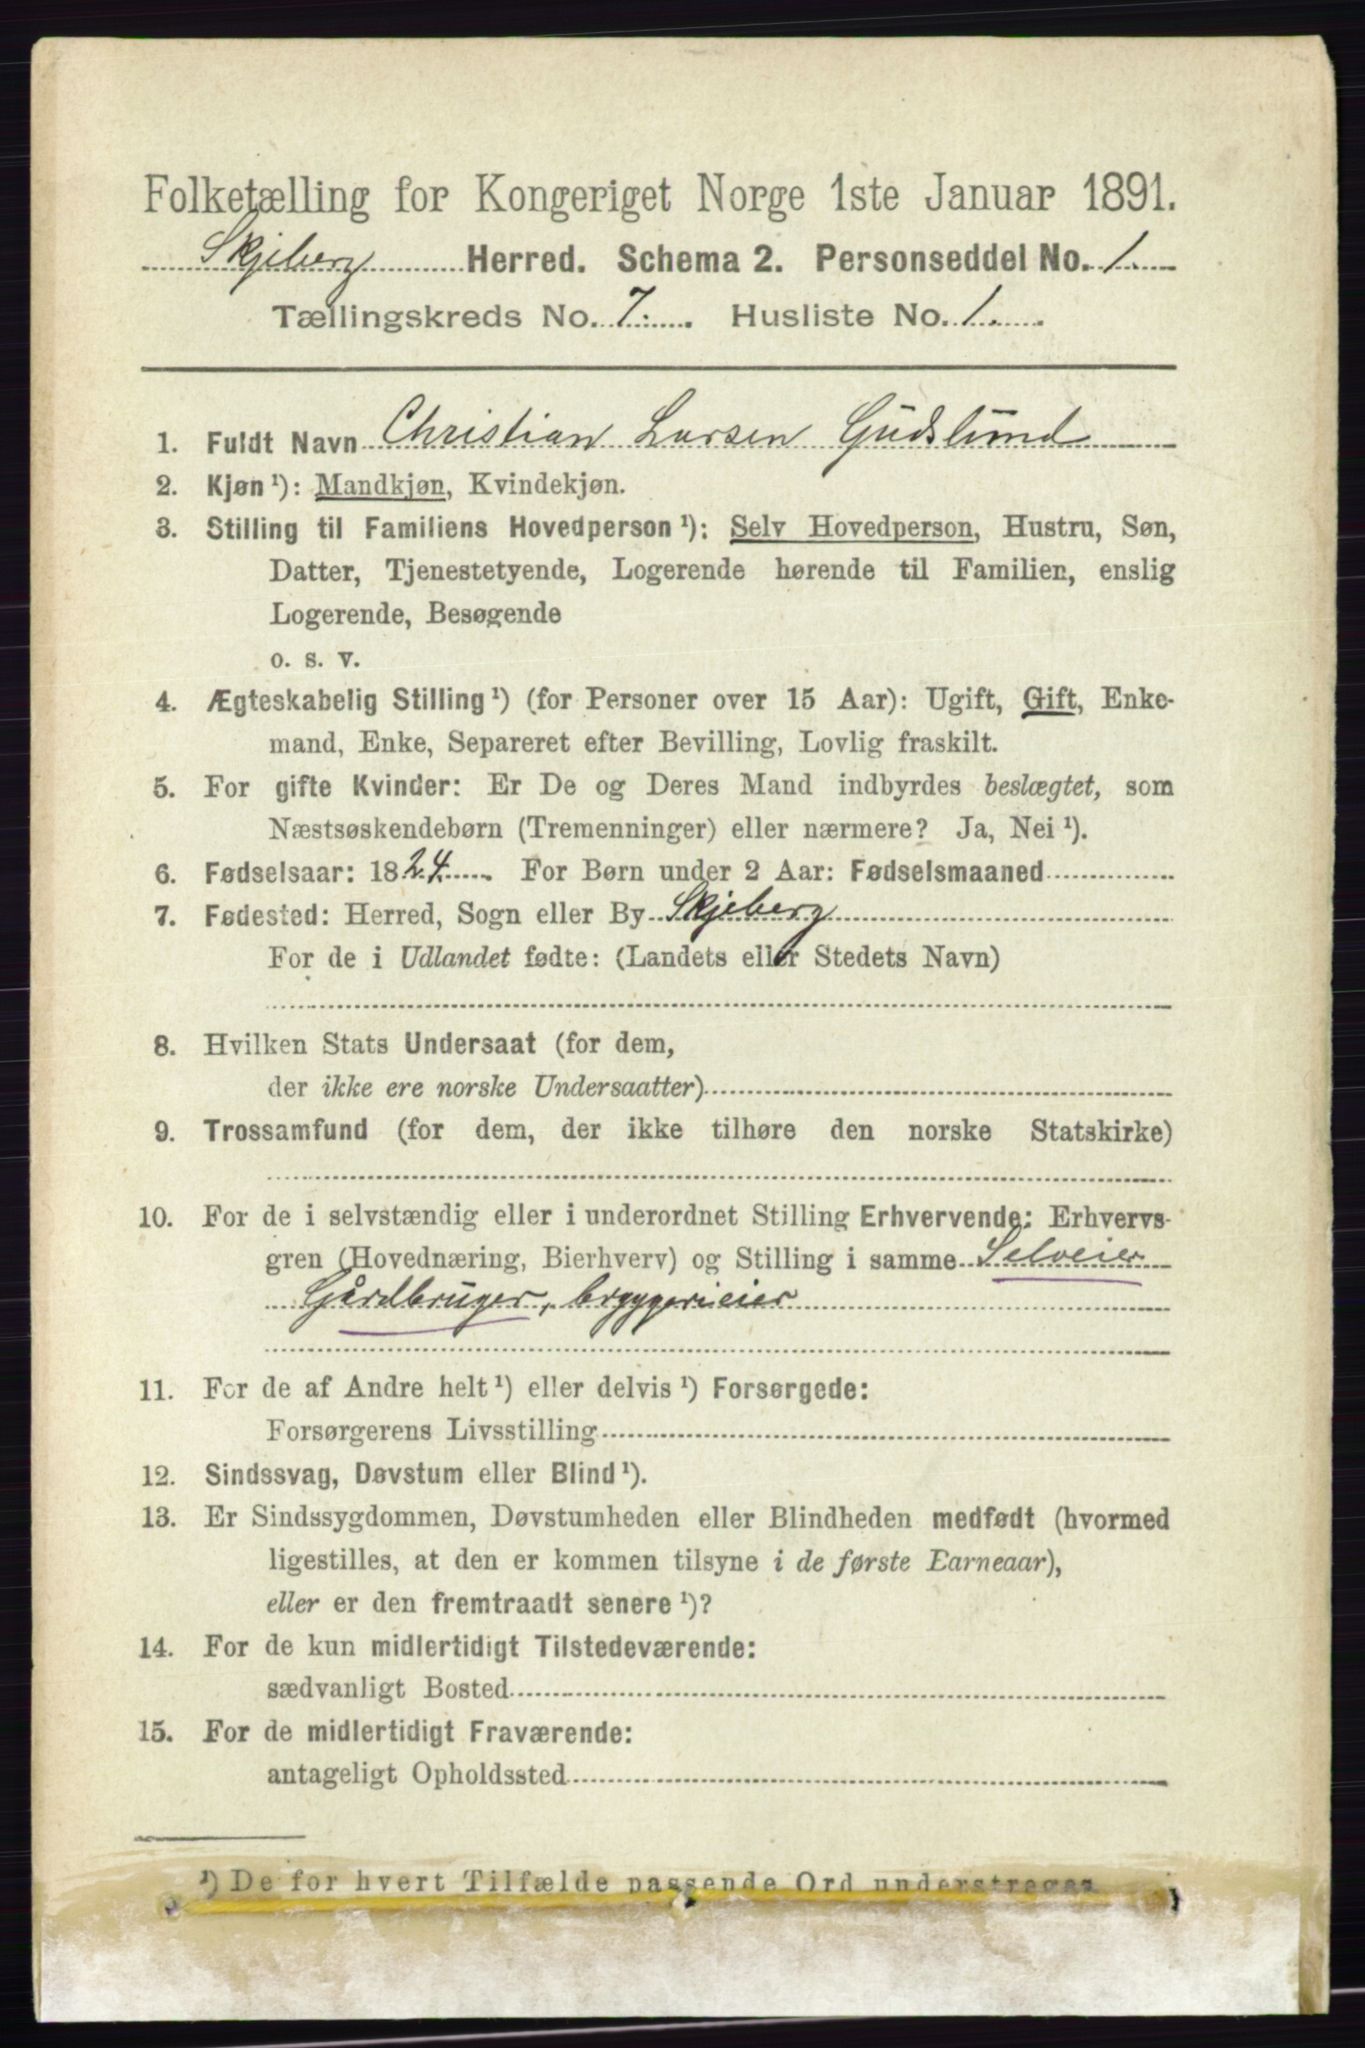 Folketælling for Kongeriget Norge 1ste Januar 1891.
Skjeberg Herred. Schema 2. Personseddel No. 1.
Tællingskreds No. 7. Husliste No. 1.
1. Fuldt Navn Christian Larsen Gudslund
2. Kjøn ¹): Mandkjøn, Kvindekjøn.
3. Stilling til Familiens Hovedperson ¹): Selv Hovedperson, Hustru, Søn,
Datter, Tjenestetyende, Logerende hørende til Familien, enslig
Logerende, Besøgende
o. s. v.
4. Ægteskabelig Stilling ¹) (for Personer over 15 Aar): Ugift, Gift, Enke-
mand, Enke, Separeret efter Bevilling, Lovlig fraskilt.
5. For gifte Kvinder: Er De og Deres Mand indbyrdes beslægtet, som
Næstsøskendebørn (Tremenninger) eller nærmere? Ja, Nei ¹).
6. Fødselsaar: 1824. For Børn under 2 Aar: Fødselsmaaned
7. Fødested: Herred, Sogn eller By Skjeberg
For de i Udlandet fødte: (Landets eller Stedets Navn)
8. Hvilken Stats Undersaat (for dem,
der ikke ere norske Undersaatter)
9. Trossamfund (for dem, der ikke tilhøre den norske Statskirke)
10. For de i selvstændig eller i underordnet Stilling Erhvervende: Erhvervs-
gren (Hovednæring, Bierhverv) og Stilling i samme Selveier
Gårdbruger, bryggerieier
11. For de af Andre helt ¹) eller delvis ¹) Forsørgede:
Forsørgerens Livsstilling
12. Sindssvag, Døvstum eller Blind ¹).
13. Er Sindssygdommen, Døvstumheden eller Blindheden medfødt (hvormed
ligestilles, at den er kommen tilsyne i de første Barneaar),
eller er den fremtraadt senere ¹)?
14. For de kun midlertidigt Tilstedeværende:
sædvanligt Bosted
15. For de midlertidigt Fraværende:
antageligt Opholdssted
¹) De for hvert Tilfælde passende Ord understreges